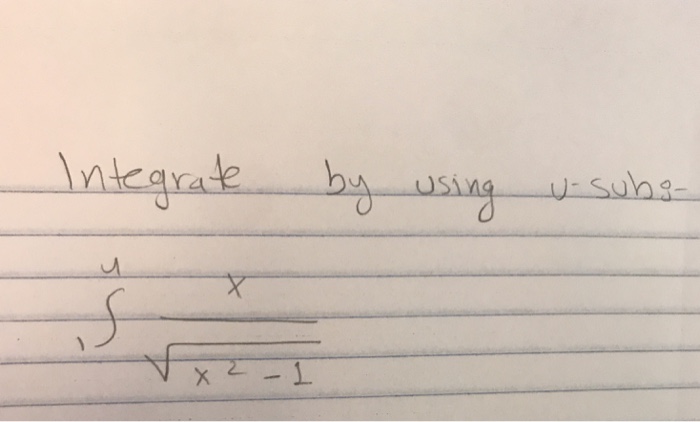 Integrate by using u-subs-
4
∫ x
1
√x² - 1